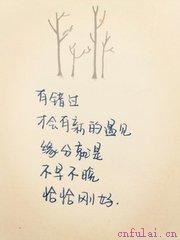 有错过
才会有新的遇见
缘分就是
不早不晚
恰恰刚好.
cnfulai.cn